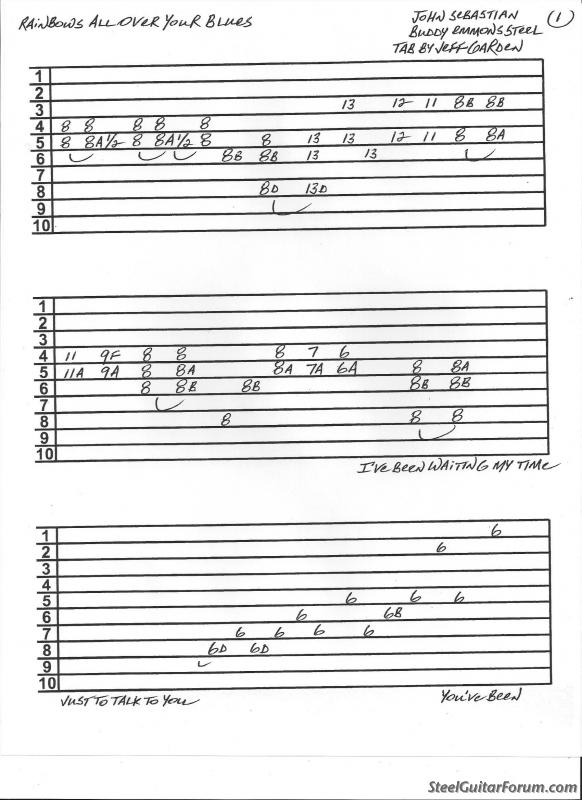 RAINBOWS ALL OVER YOUR BLUES
JOHN SEBASTIAN
BUDDY EMMONS STEEL
TAB BY JEFF GARDEN
1
1
2
3 13 12 11 8B 8B
4 8 8 8 8 8
5 8 8A1/2 8 8A1/2 8 8 13 13 12 11 8 8A
6 8B 8B 13 13
7
8 8D 13D
9
10
1
2
3
4 11 9F 8 8 8 7 6
5 11A 9A 8 8A 8A 7A 6A 8 8A
6 8 8B 8B 8B 8B
7
8 8 8 8
9
10
I'VE BEEN WAITING MY TIME
1 6
2 6
3
4
5 6 6 6
6 6 6B
7 6 6 6 6
8 6D 6D
9
10
JUST TO TALK TO YOU
YOU'VE BEEN
SteelGuitarForum.com